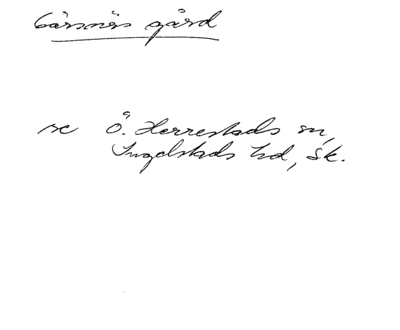 Gärsnäs gård
se Ö. Herrestads sn,
Ingelstads hd, Sk.